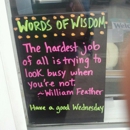 WORDS OF WISDOM
The hardest job
of all is trying to
look busy when
you're not.
~William Feather
Have a good Wednesday